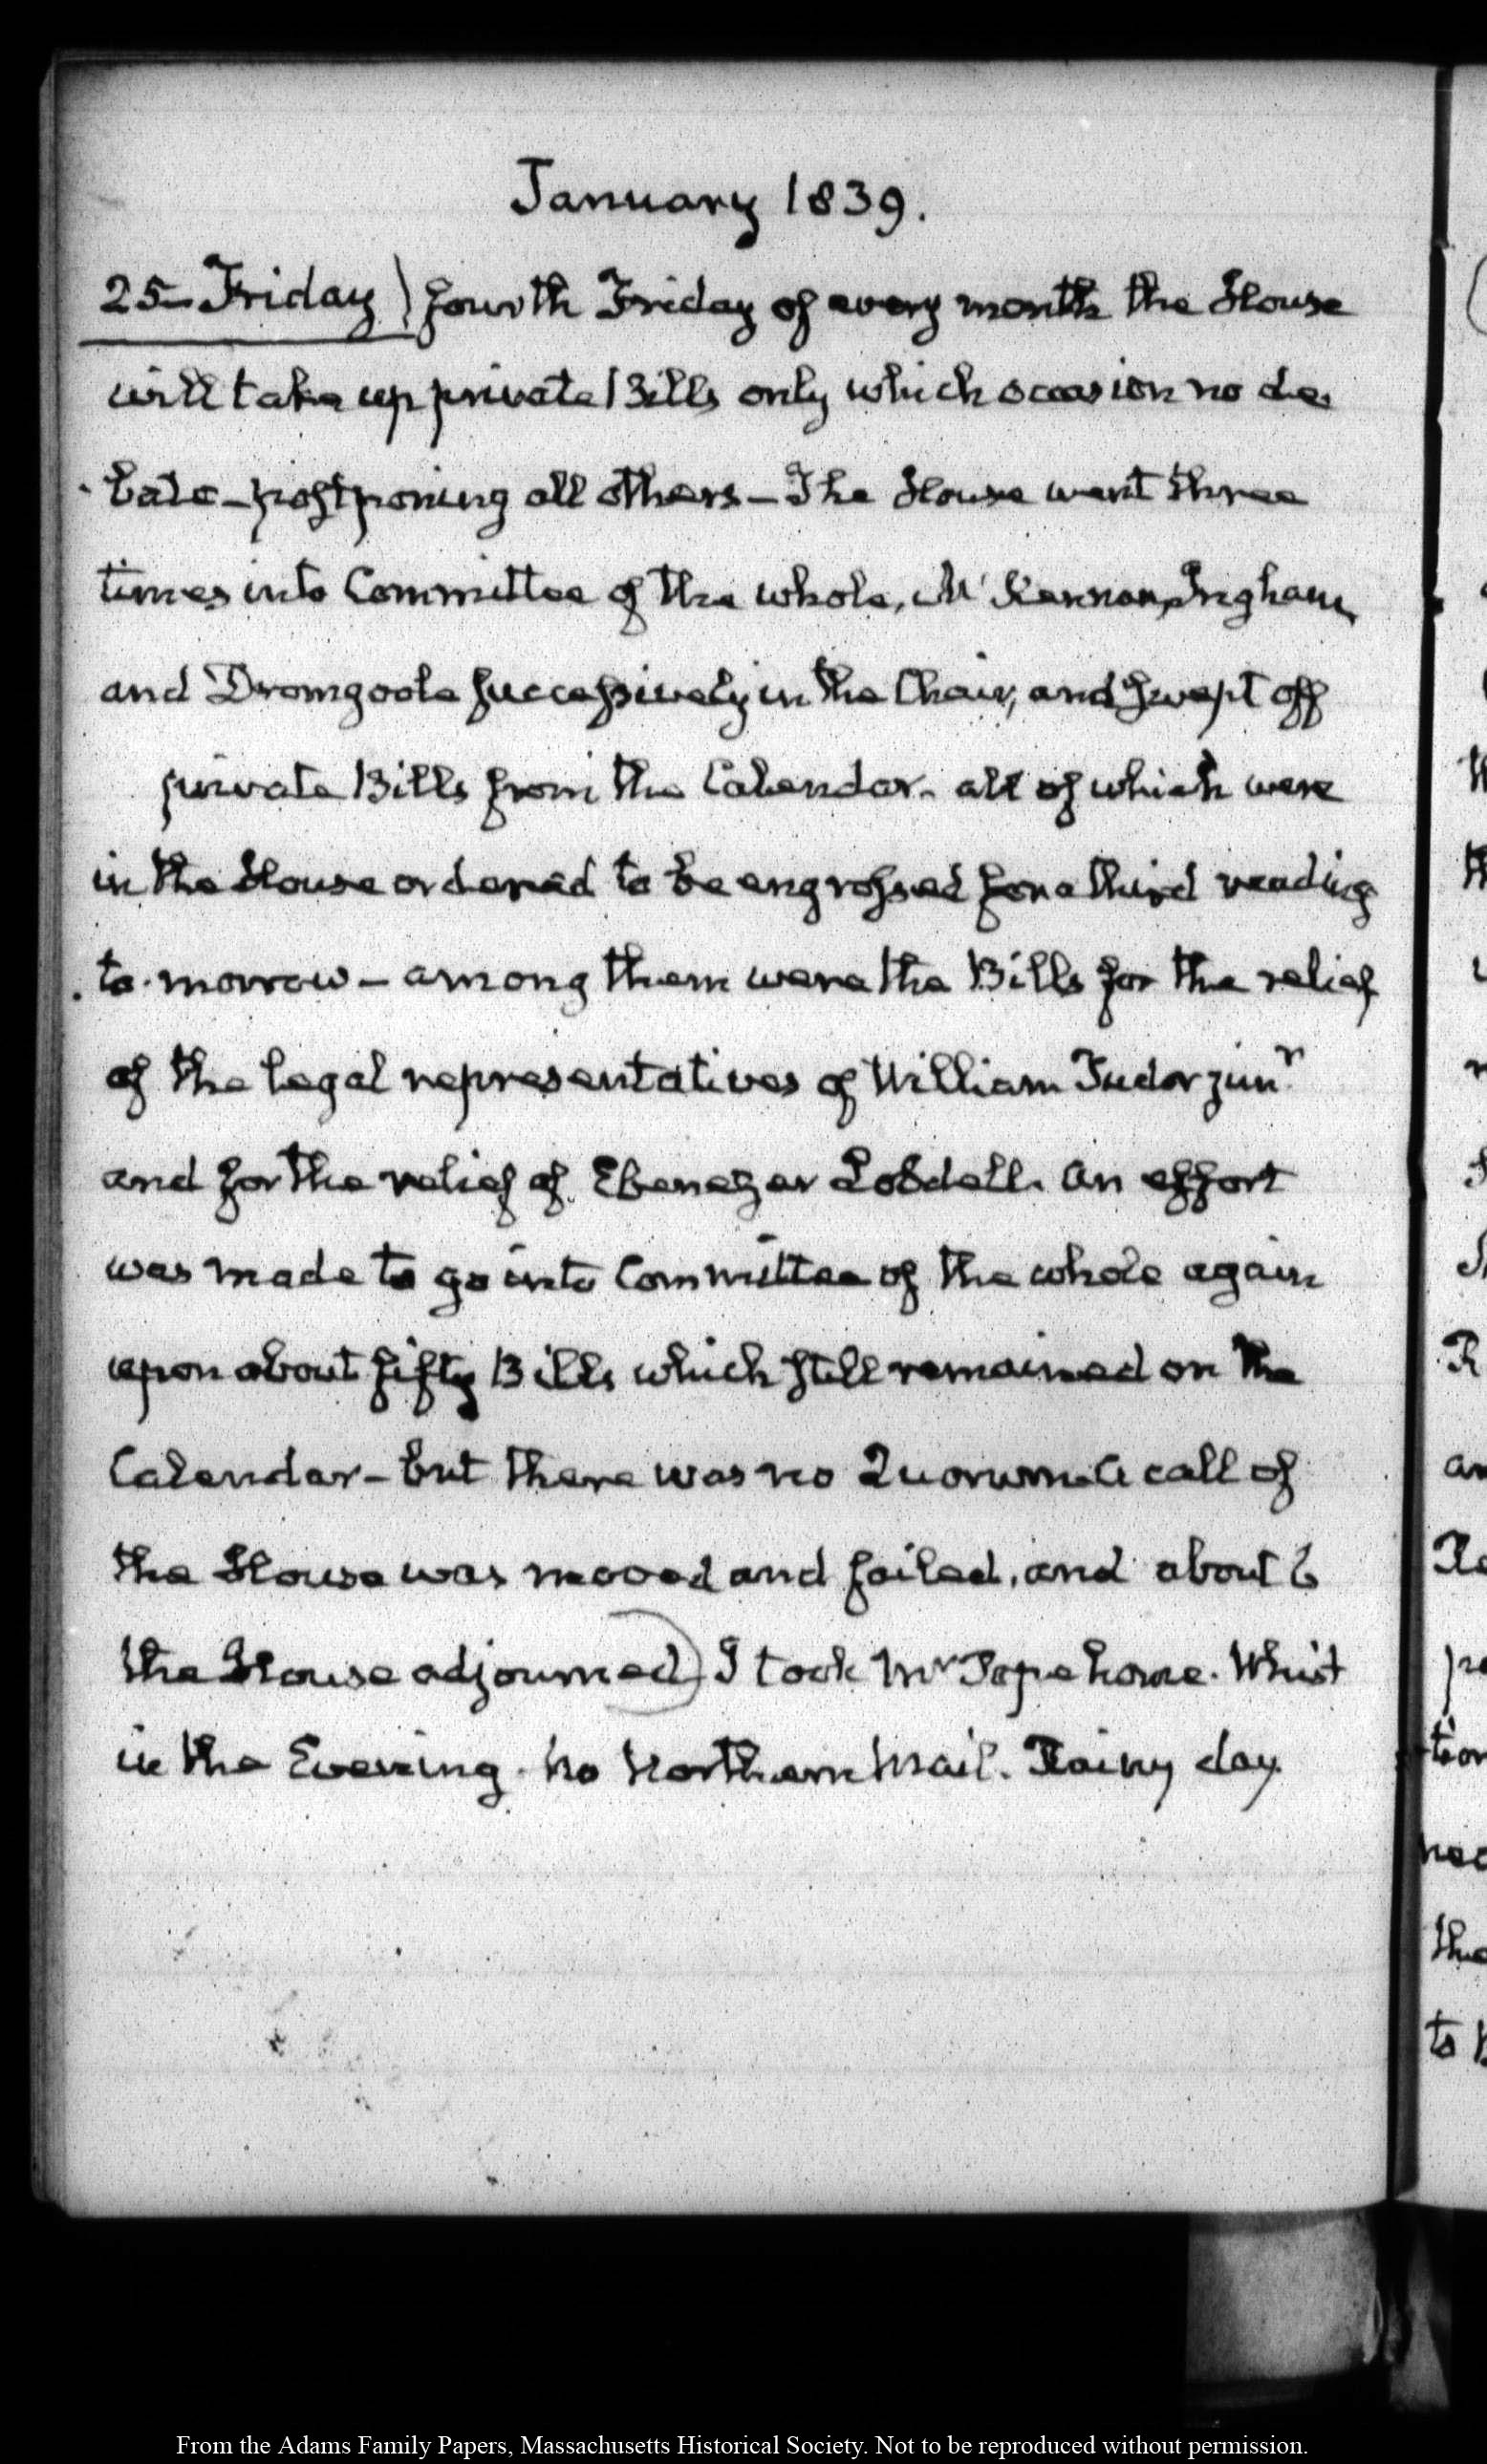 January 1839.
25– Friday) fourth Friday of every month the House
will take up private Bills only which occasion no de
bate – postponing all others – The House went three
times into Committee of the whole, McKennan, Ingham
and Dromgoole successively in the Chair, and swept off
private Bills from the Calendar – all of which were
in the House ordered to be engrossed for a third reading
to-morrow – among them were the Bills for the relief
of the legal representatives of William Tudor junr
and for the relief of Ebenezer Lobdell. An effort
was made to go into Committee of the whole again
upon about fifty Bills which still remained on the
Calendar – but there was no Quorum. A call of
the House was moved and failed, and about 6
the House adjourned) I took Mr Pope home. Whist
in the Evening. No Northern Mail. Rainy day
an
the
to
From the Adams Family Papers, Massachusetts Historical Society. Not to be reproduced without permission.